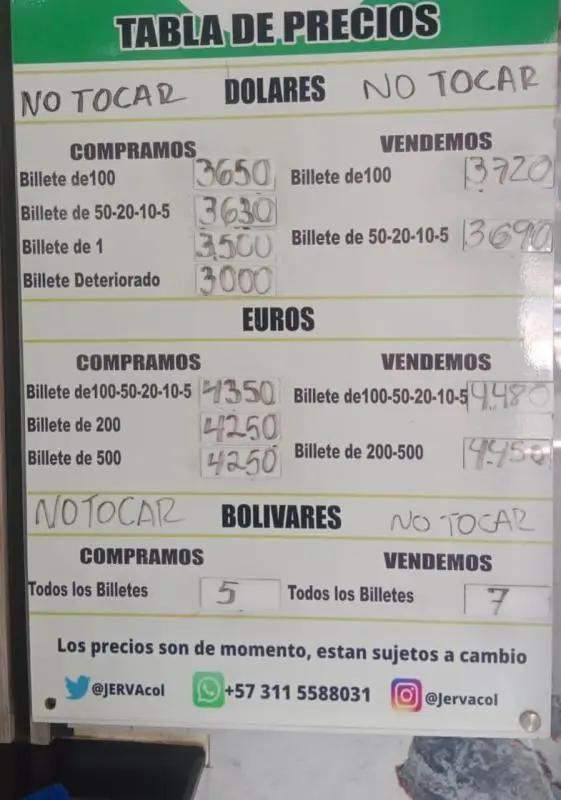 TABLA DE PRECIOS
NO TOCAR DOLARES NO TOCAR
COMPRAMOS VENDEMOS
Billete de100 3650 Billete de100 3720
Billete de 50-20-10-5 3630
Billete de 50-20-10-5 3690
Billete de 1 3500
Billete Deteriorado 3000
EUROS
COMPRAMOS VENDEMOS
Billete de100-50-20-10-5 4350 Billete de100-50-20-10-5 4.480
Billete de 200 4250
Billete de 500 4250 Billete de 200-500 4.450
NO TOCAR BOLIVARES NO TOCAR
COMPRAMOS VENDEMOS
Todos los Billetes 5 Todos los Billetes 7
Los precios son de momento, estan sujetos a cambio
@JERVAcol +57 311 5588031 @Jervacol